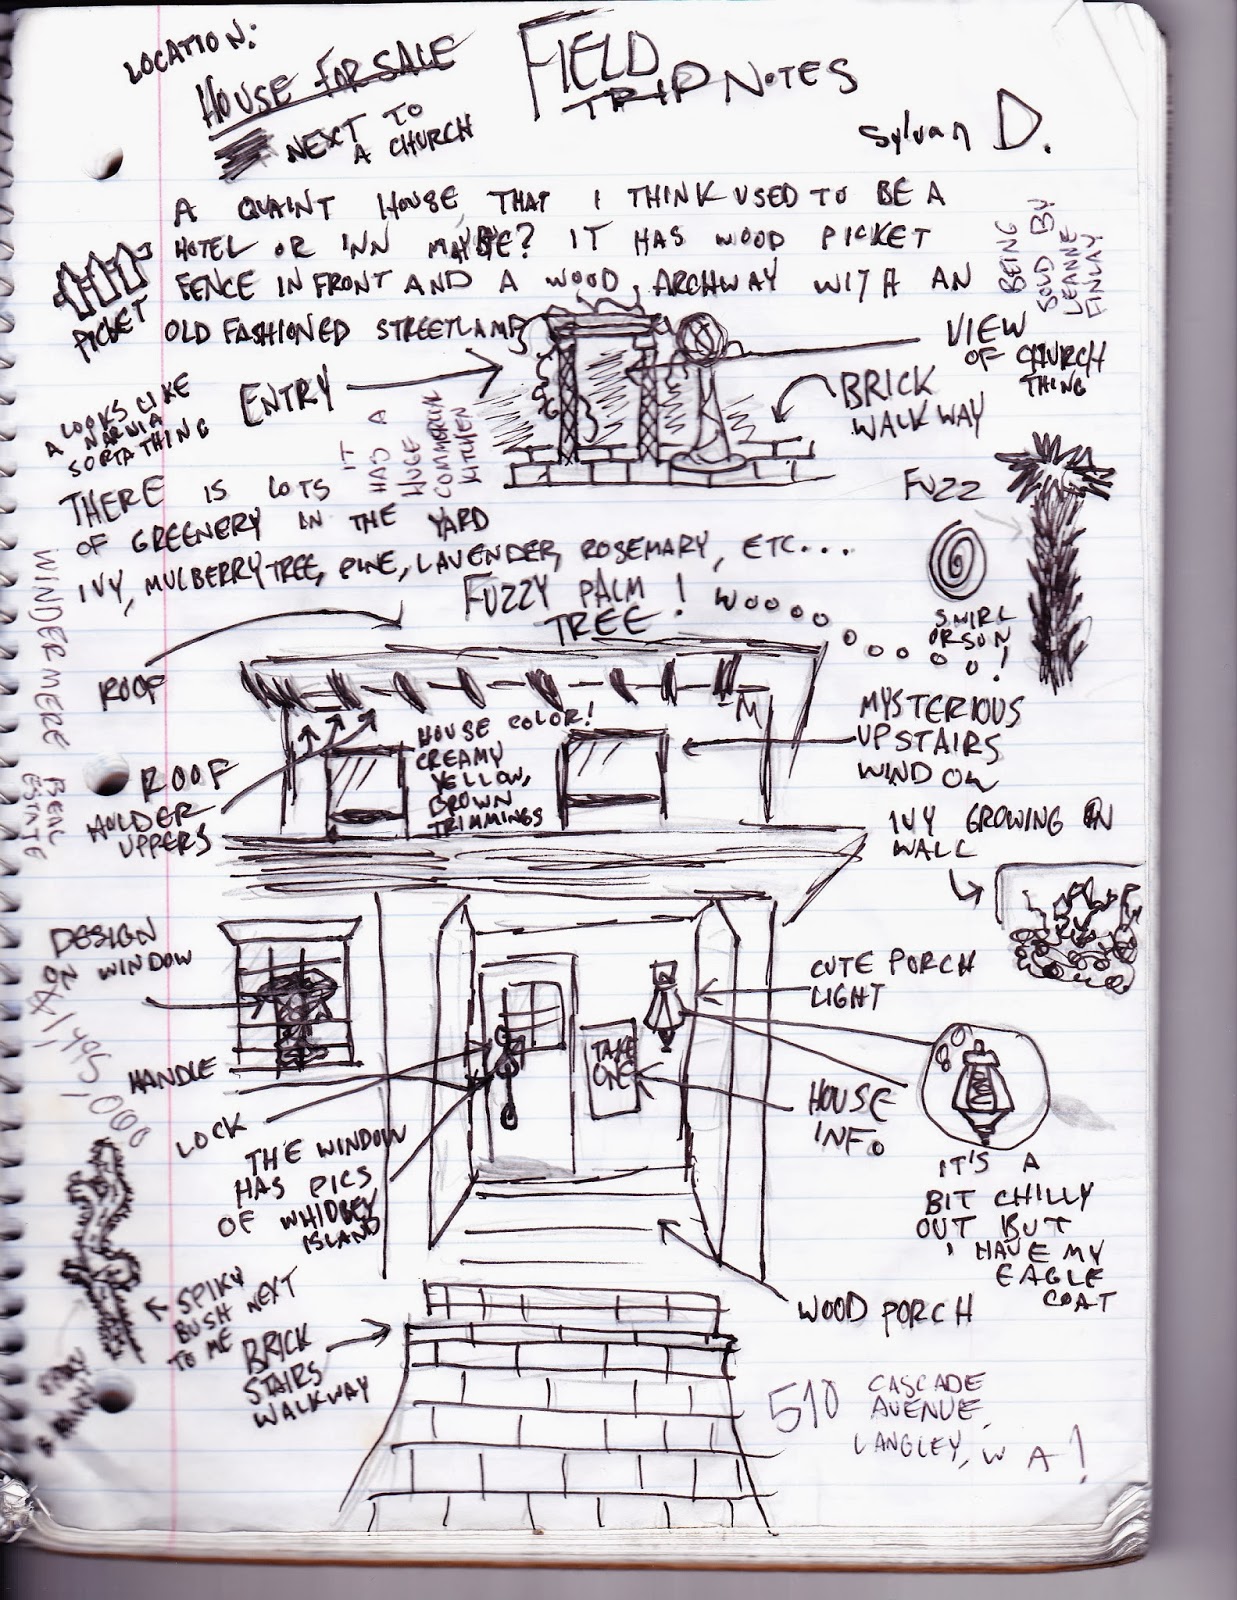 LOCATION:
HOUSE FOR SALE
NEXT TO
A CHURCH
FIELD
TRIP NOTES
Sylvan D.
A QUAINT HOUSE THAT I THINK USED TO BE A
HOTEL OR INN MAYBE? IT HAS WOOD PICKET
FENCE IN FRONT AND A WOOD ARCHWAY WITH AN
OLD FASHIONED STREETLAMP
PICKET
BEING
SOLD BY
LEANNE
FINLAY
ENTRY
LOOKS LIKE
A NARNIA
SORTA THING
IT
HAD A
HUGE
COMMERCIAL
KITCHEN
VIEW
OF CHURCH
THING
BRICK
WALKWAY
THERE IS LOTS
OF GREENERY IN THE YARD
IVY, MULBERRY TREE, PINE, LAVENDER, ROSEMARY, ETC...
FUZZY PALM
TREE!
WOOOOOOOOOO!
FUZZ
SWIRL
OR SUN
WINDERMERE REAL
ESTATE
ROOF
ROOF
HOLDER
UPPERS
HOUSE COLOR!
CREAMY
YELLOW,
BROWN
TRIMMINGS
MYSTERIOUS
UPSTAIRS
WINDOW
IVY GROWING ON
WALL
DESIGN
ON WINDOW
$1,495,000
CUTE PORCH
LIGHT
HANDLE
LOCK
TAKE
ONE
HOUSE
INFO
THE WINDOW
HAS PICS
OF WHIDBEY
ISLAND
IT'S A
BIT CHILLY
OUT BUT
I HAVE MY
EAGLE
COAT
SPIKY
BUSH NEXT
TO ME
BRICK
STAIRS
WALKWAY
WOOD PORCH
510 CASCADE
AVENUE,
LANGLEY, WA!